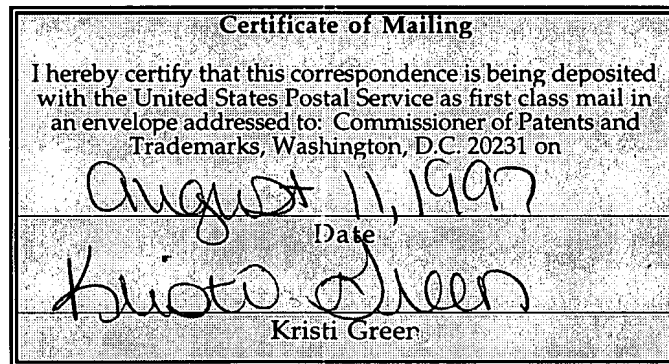 Certificate of Mailing
I hereby certify that this correspondence is being deposited
with the United States Postal Service as first class mail in
an envelope addressed to: Commissioner of Patents and
Trademarks, Washington, D.C. 20231 on
August 11, 1997
Date
Kristi Green
Kristi Green